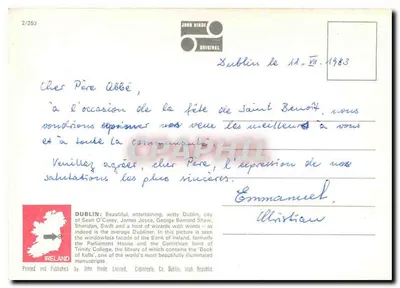 2/283
JOHN HINDE
ORIGINAL
Dublin le 11 VII 1983
Cher Père Abbé,
à l'occasion de la fête de Saint Benoît, nous
voudrions exprimer nos vœux les meilleurs à vous
et à toute la communauté.
Veuillez agréer, cher Père, l'expression de nos
salutations les plus sincères.
Emmanuel
Christian
DUBLIN: Beautiful, entertaining, witty Dublin, city
of Sean O'Casey, James Joyce, George Bernard Shaw,
Sheridan, Swift and a host of wizards with words — as
indeed is the average Dubliner. In this picture is seen
the windowless facade of the Bank of Ireland, formerly
the Parliament House and the Corinthian front of
Trinity College, the library of which contains the 'Book
of Kells', one of the world's most beautifully illuminated
manuscripts.
IRELAND
Printed and Published by John Hinde Limited, Cabinteely, Co. Dublin, Irish Republic